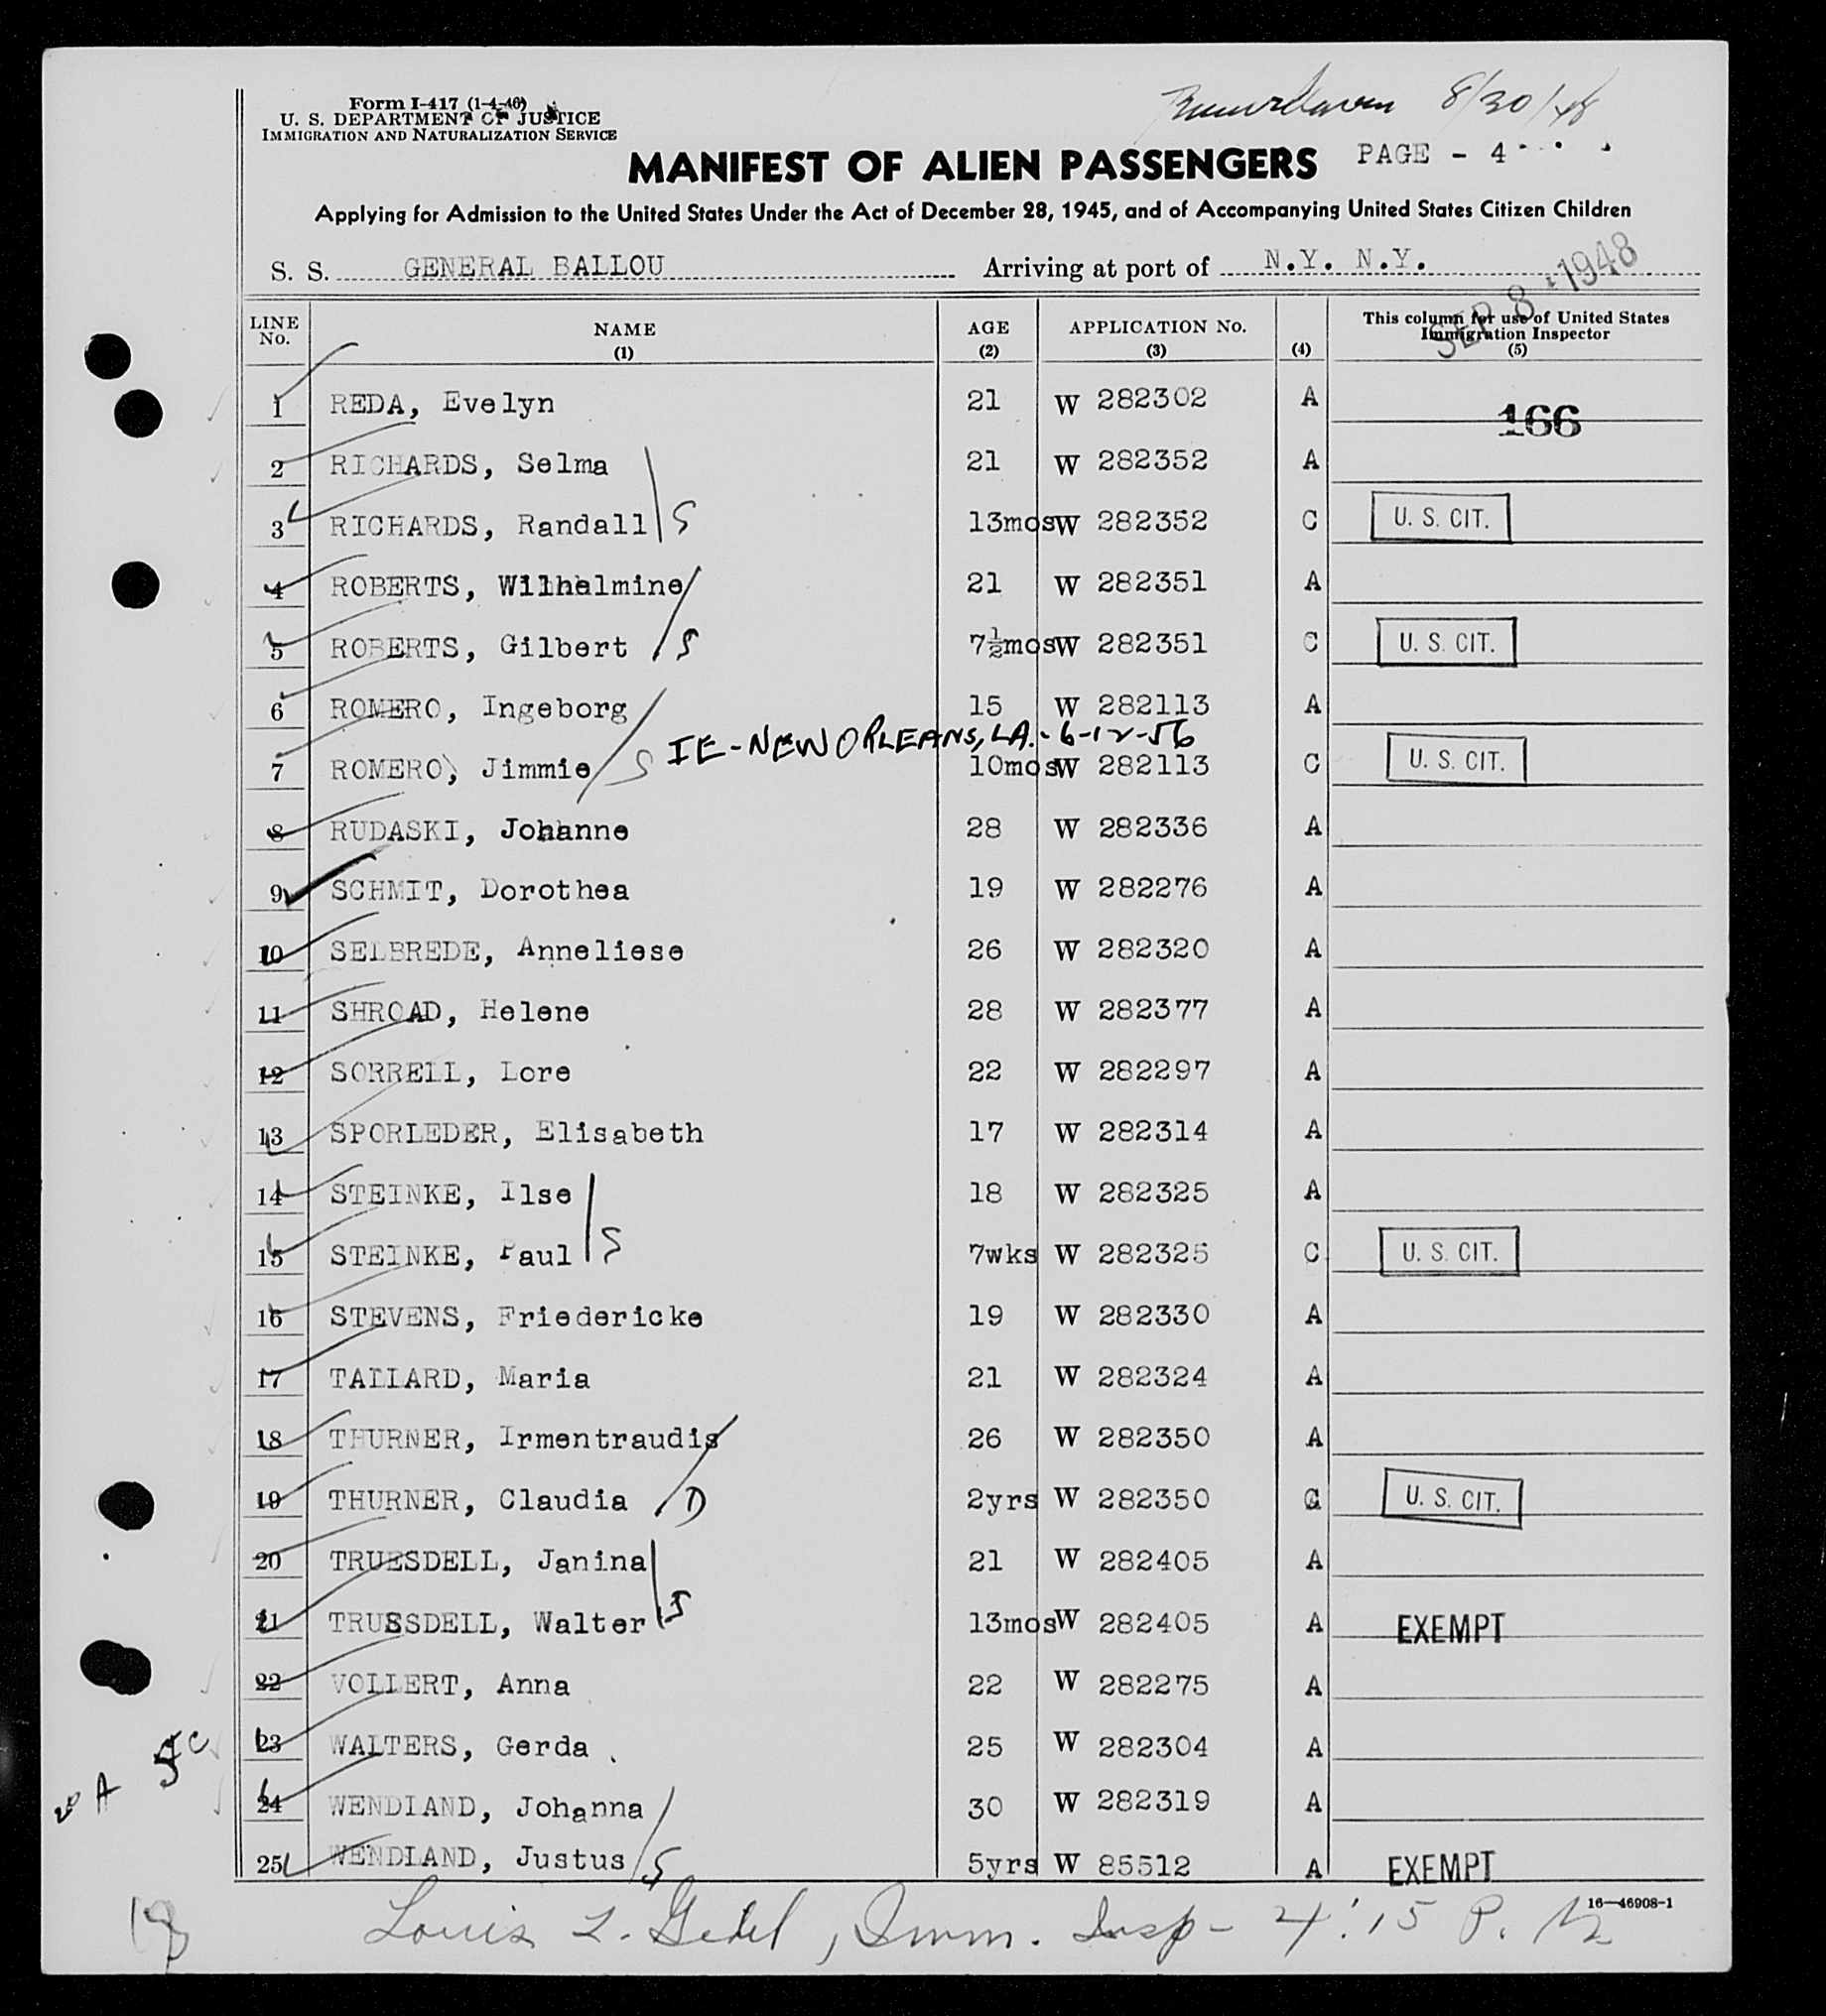 Form I-417 (1-4-46)
U. S. DEPARTMENT OF JUSTICE
IMMIGRATION AND NATURALIZATION SERVICE
8/30/48
MANIFEST OF ALIEN PASSENGERS PAGE - 4
Applying for Admission to the United States Under the Act of December 28, 1945, and of Accompanying United States Citizen Children
S. S. GENERAL BALLOU Arriving at port of N.Y. N.Y.
SEP 8 1948
LINE No. NAME (1) AGE (2) APPLICATION No. (3) (4) This column for use of United States Immigration Inspector (5)
1 REDA, Evelyn 21 W 282302 A 166
2 RICHARDS, Selma 21 W 282352 A
3 RICHARDS, Randall S 13mos W 282352 C U. S. CIT.
4 ROBERTS, Wilhelmine 21 W 282351 A
5 ROBERTS, Gilbert S 7½mos W 282351 C U. S. CIT.
6 ROMERO, Ingeborg 15 W 282113 A
IE-NEW ORLEANS, LA.-6-12-56
7 ROMERO, Jimmie S 10mos W 282113 C U. S. CIT.
8 RUDASKI, Johanne 28 W 282336 A
9 SCHMIT, Dorothea 19 W 282276 A
10 SELBREDE, Anneliese 26 W 282320 A
11 SHROAD, Helene 28 W 282377 A
12 SORRELL, Lore 22 W 282297 A
13 SPORLEDER, Elisabeth 17 W 282314 A
14 STEINKE, Ilse 18 W 282325 A
15 STEINKE, Paul S 7wks W 282325 C U. S. CIT.
16 STEVENS, Friedericke 19 W 282330 A
17 TALLARD, Maria 21 W 282324 A
18 THURNER, Irmentraudis 26 W 282350 A
19 THURNER, Claudia D 2yrs W 282350 C U. S. CIT.
20 TRUESDELL, Janina 21 W 282405 A
21 TRUESDELL, Walter S 13mos W 282405 A EXEMPT
22 VOLLERT, Anna 22 W 282275 A
23 WALTERS, Gerda 25 W 282304 A
5 C
20 A
24 WENDLAND, Johanna 30 W 282319 A
25 WENDLAND, Justus S 5yrs W 85512 A EXEMPT
16—46908-1
Louis L. , Imm. Insp - 4:15 P. M